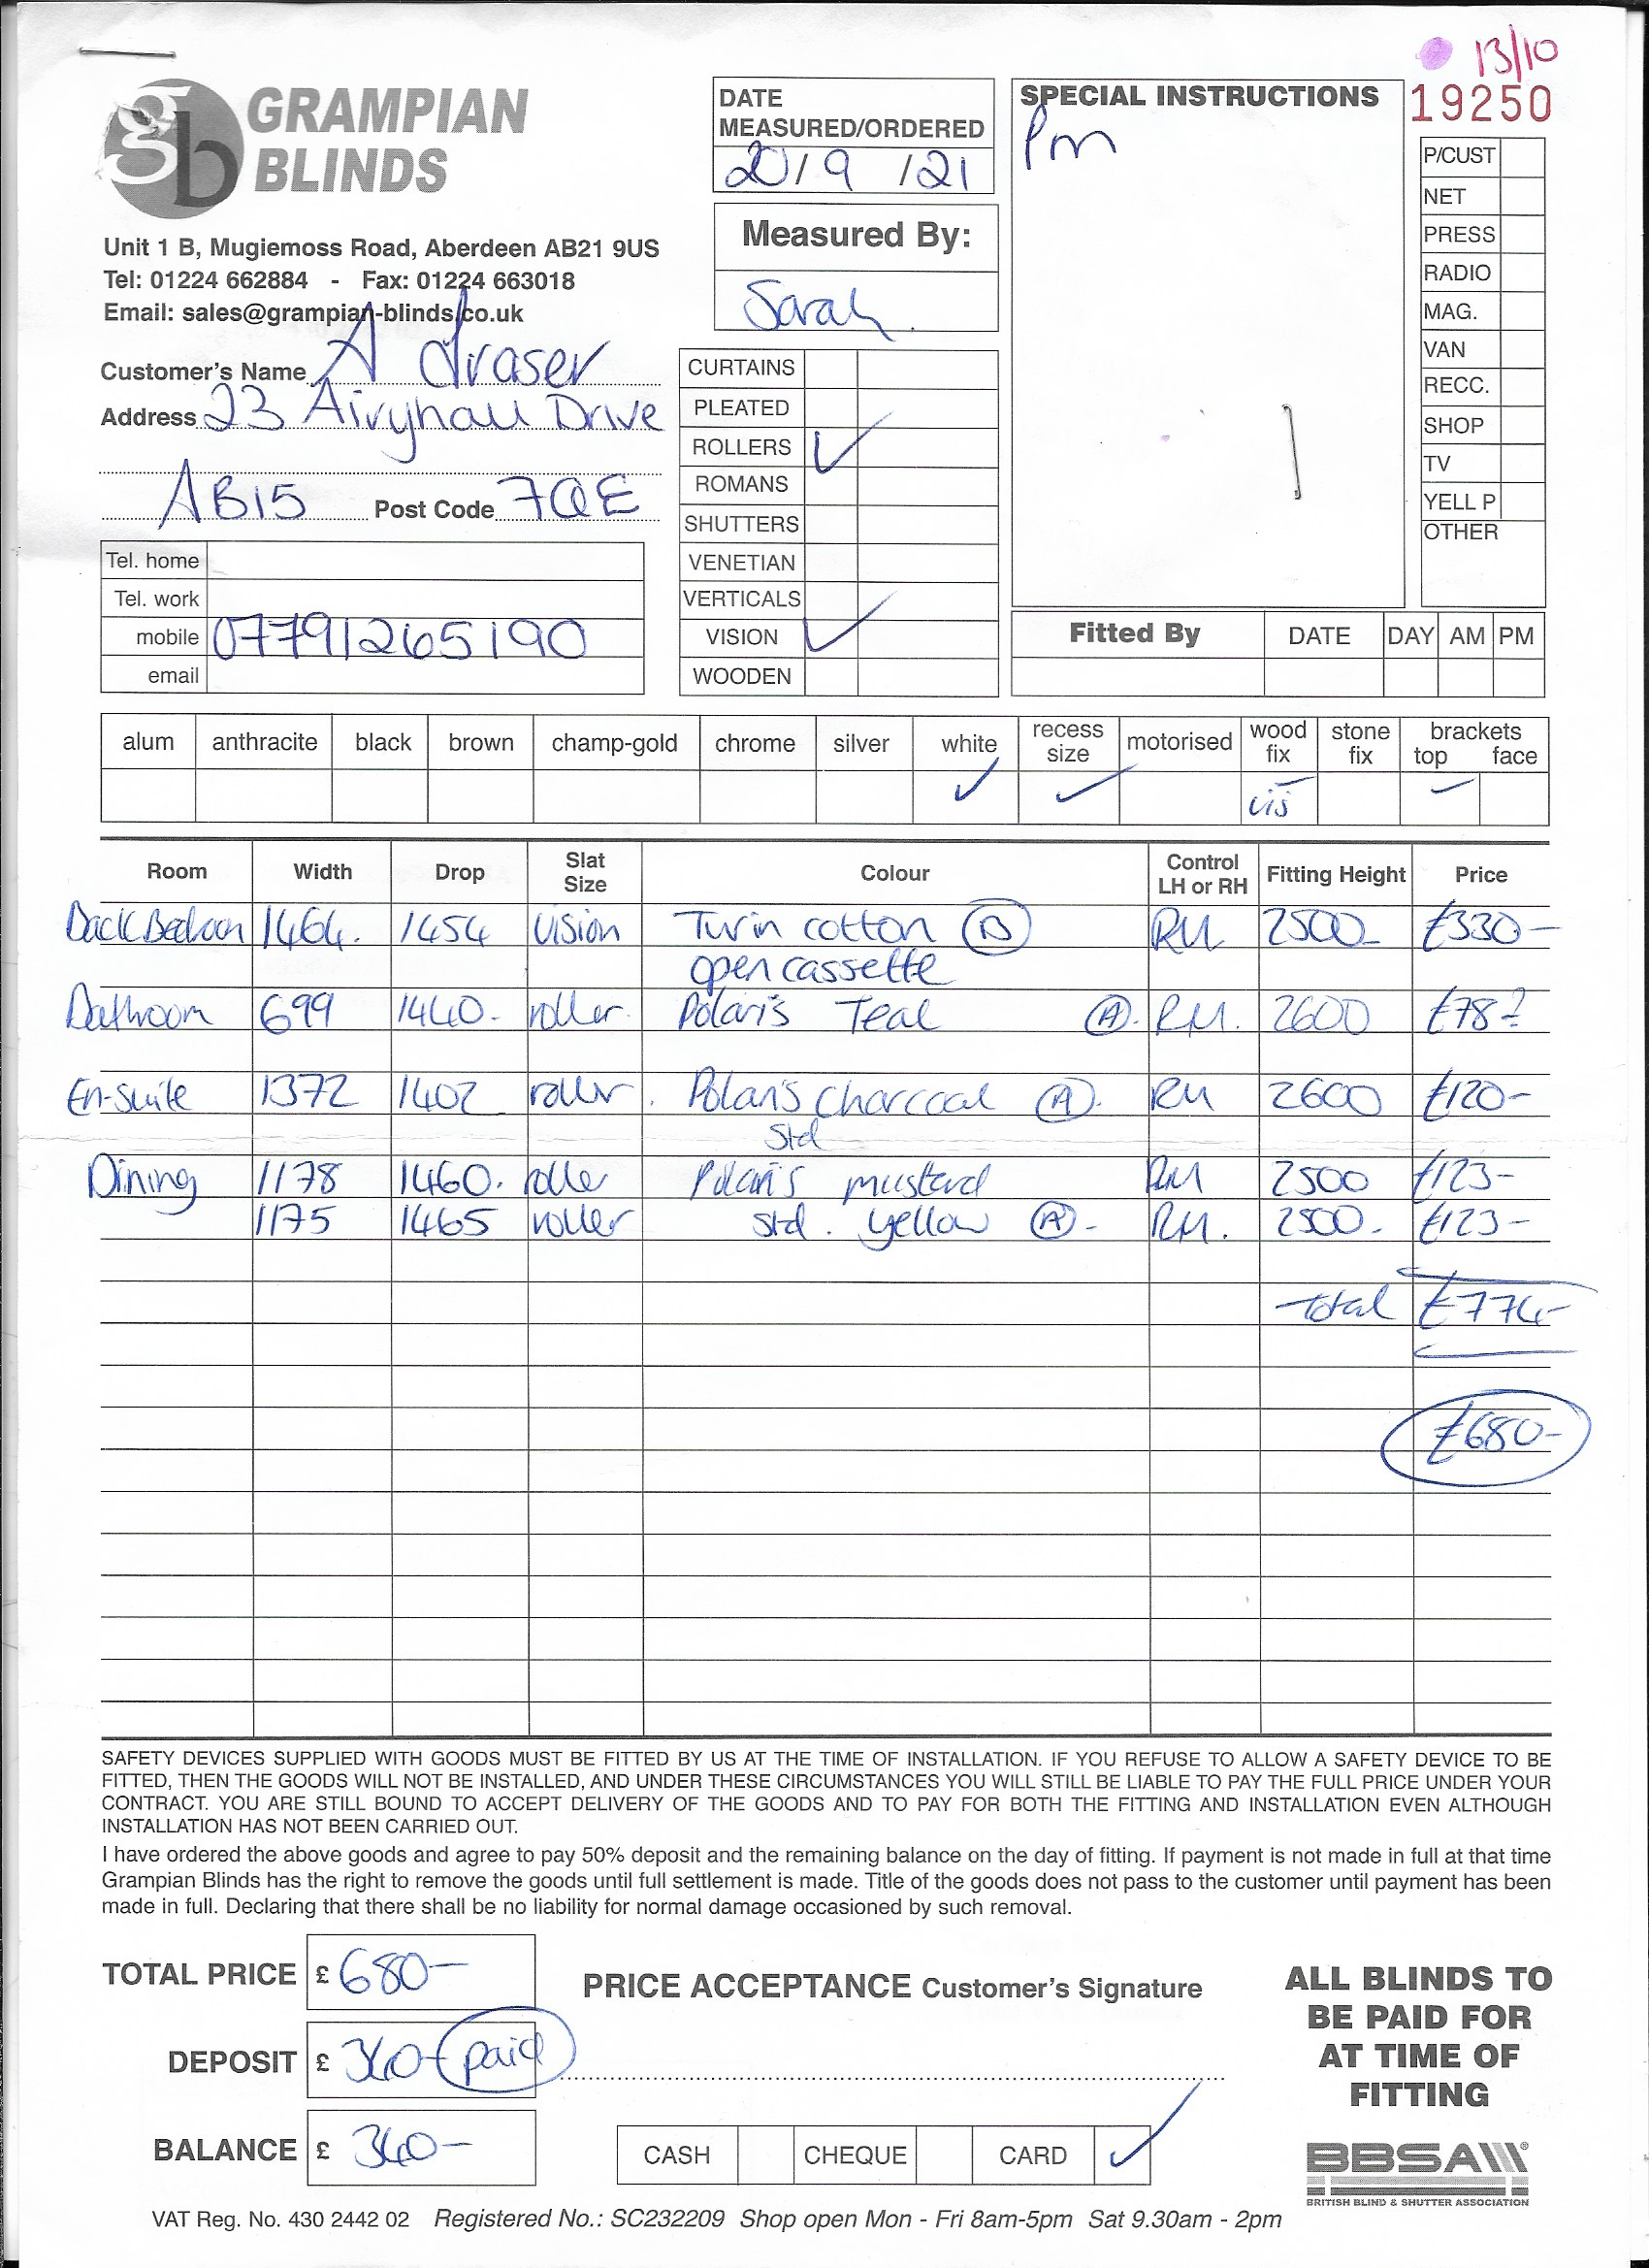 13/10
19250
GRAMPIAN
BLINDS
gb
Unit 1 B, Mugiemoss Road, Aberdeen AB21 9US
Tel: 01224 662884 - Fax: 01224 663018
Email: sales@grampian-blinds.co.uk
Customer's Name A Fraser
Address 23 Airyhall Drive
AB15 Post Code 7QE
Tel. home
Tel. work
mobile 07791265190
email
DATE
MEASURED/ORDERED
20/9/21
Measured By:
Sarah
CURTAINS
PLEATED
ROLLERS ✓
ROMANS
SHUTTERS
VENETIAN
VERTICALS
VISION ✓
WOODEN
SPECIAL INSTRUCTIONS
Pm
P/CUST
NET
PRESS
RADIO
MAG.
VAN
RECC.
SHOP
TV
YELL P
OTHER
Fitted By DATE DAY AM PM
alum anthracite black brown champ-gold chrome silver white recess size motorised wood fix stone fix brackets top face
✓ ✓ vis ✓
Room Width Drop Slat Size Colour Control LH or RH Fitting Height Price
Back Bedroom 1464. 1454 vision Turin cotton (B) RH 2500 £330-
open cassette
Bathroom 699 1440. roller. Polaris Teal (A). RH. 2600 £78-
En-Suite 1372 1402 roller. Polaris Charcoal (A). RH 2600 £120-
Std
Dining 1178 1460. roller Polaris mustard RH 2500 £123-
1175 1465 roller std. yellow (A)- RH. 2500. £123-
total £774-
£680-
SAFETY DEVICES SUPPLIED WITH GOODS MUST BE FITTED BY US AT THE TIME OF INSTALLATION. IF YOU REFUSE TO ALLOW A SAFETY DEVICE TO BE
FITTED, THEN THE GOODS WILL NOT BE INSTALLED, AND UNDER THESE CIRCUMSTANCES YOU WILL STILL BE LIABLE TO PAY THE FULL PRICE UNDER YOUR
CONTRACT. YOU ARE STILL BOUND TO ACCEPT DELIVERY OF THE GOODS AND TO PAY FOR BOTH THE FITTING AND INSTALLATION EVEN ALTHOUGH
INSTALLATION HAS NOT BEEN CARRIED OUT.
I have ordered the above goods and agree to pay 50% deposit and the remaining balance on the day of fitting. If payment is not made in full at that time
Grampian Blinds has the right to remove the goods until full settlement is made. Title of the goods does not pass to the customer until payment has been
made in full. Declaring that there shall be no liability for normal damage occasioned by such removal.
TOTAL PRICE £ 680-
DEPOSIT £ 340- paid
BALANCE £ 340-
PRICE ACCEPTANCE Customer's Signature
CASH CHEQUE CARD ✓
ALL BLINDS TO
BE PAID FOR
AT TIME OF
FITTING
BBSA
BRITISH BLIND & SHUTTER ASSOCIATION
VAT Reg. No. 430 2442 02 Registered No.: SC232209 Shop open Mon - Fri 8am-5pm Sat 9.30am - 2pm